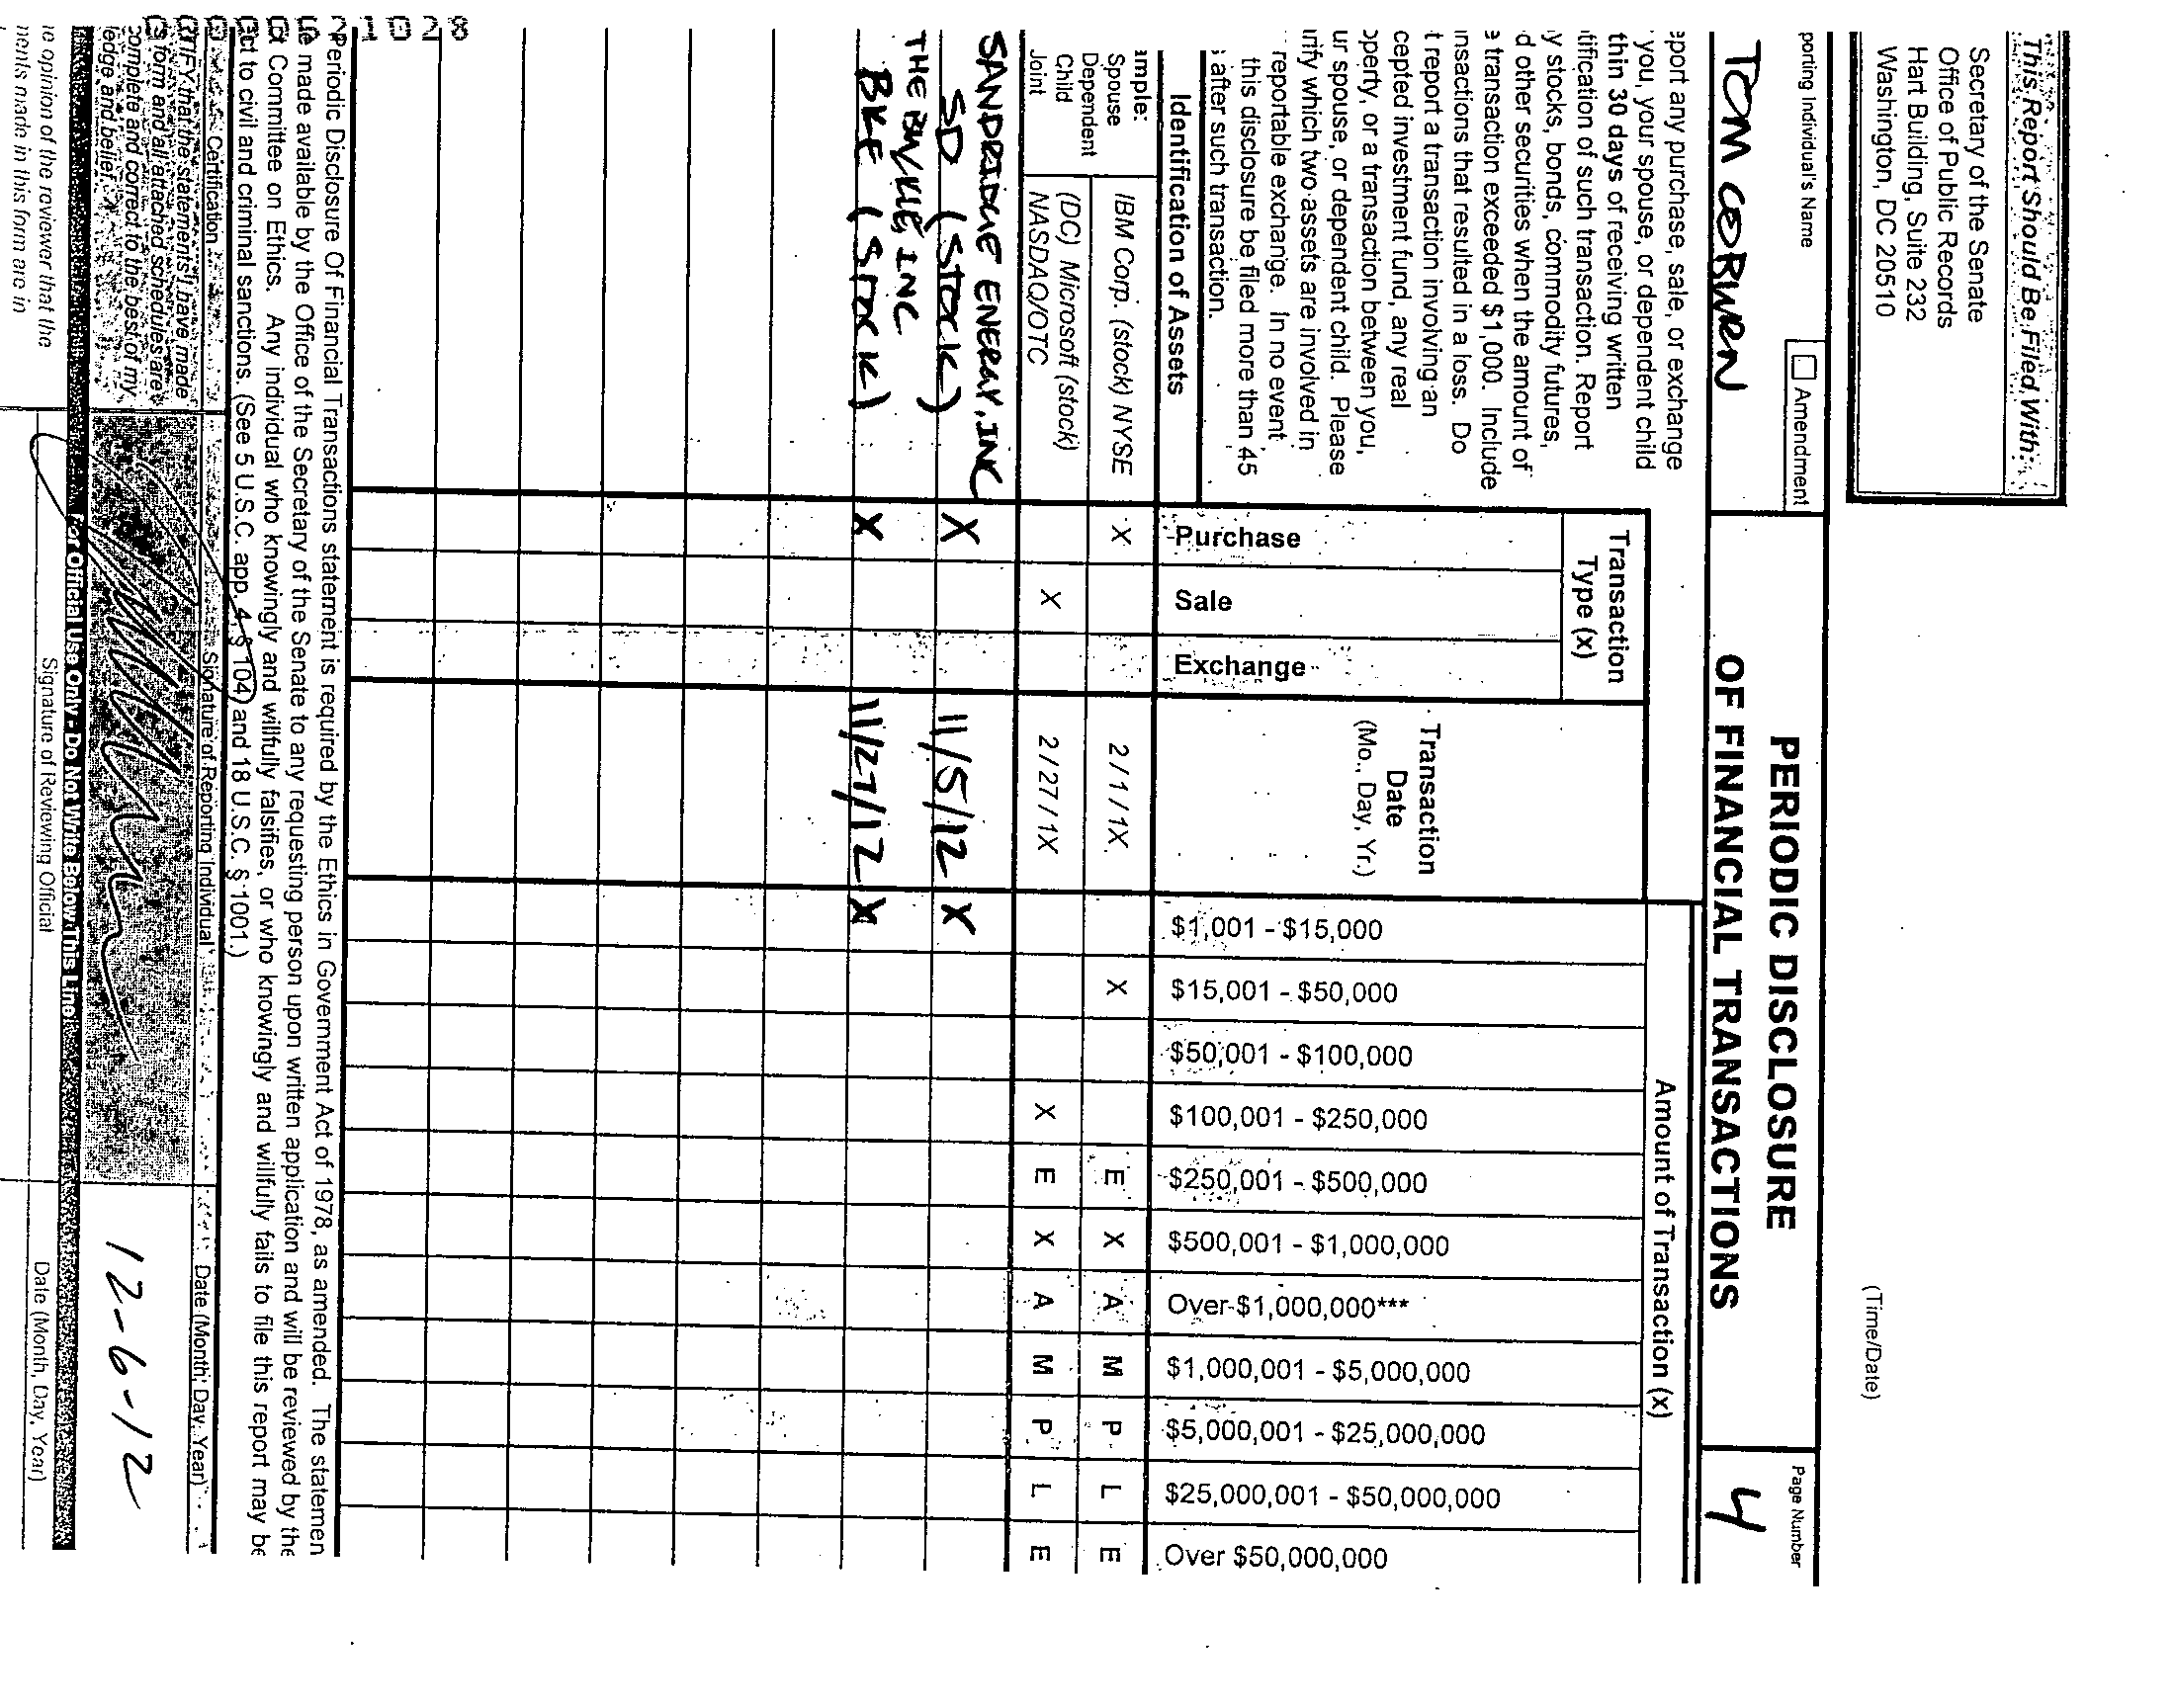 (Time/Date)
This Report Should Be Filed With:
Secretary of the Senate
Office of Public Records
Hart Building, Suite 232
Washington, DC 20510
porting Individual's Name
Amendment
TOM COBURN
PERIODIC DISCLOSURE
OF FINANCIAL TRANSACTIONS
Page Number
4
eport any purchase, sale, or exchange
you, your spouse, or dependent child
thin 30 days of receiving written
tification of such transaction. Report
y stocks, bonds, commodity futures,
d other securities when the amount of
e transaction exceeded $1,000. Include
nsactions that resulted in a loss. Do
t report a transaction involving an
cepted investment fund, any real
operty, or a transaction between you,
ur spouse, or dependent child. Please
rify which two assets are involved in
reportable exchange. In no event
this disclosure be filed more than 45
after such transaction.
Identification of Assets
Transaction
Type (x)
Purchase
Sale
Exchange
Transaction
Date
(Mo., Day, Yr.)
Amount of Transaction (x)
$1,001 - $15,000
$15,001 - $50,000
$50,001 - $100,000
$100,001 - $250,000
$250,001 - $500,000
$500,001 - $1,000,000
Over $1,000,000***
$1,000,001 - $5,000,000
$5,000,001 - $25,000,000
$25,000,001 - $50,000,000
Over $50,000,000
ample:
Spouse
Dependent
Child
Joint
IBM Corp. (stock) NYSE X 2/1/1X X E X A M P L E
(DC) Microsoft (stock)
NASDAQ/OTC X 2/27/1X X E X A M P L E
SANDRIDGE ENERGY, INC
SD (STOCK) X 11/5/12 X
THE BUCKLE, INC
BKE (STOCK) X 11/27/12 X
21028
Periodic Disclosure Of Financial Transactions statement is required by the Ethics in Government Act of 1978, as amended. The statemen
made available by the Office of the Secretary of the Senate to any requesting person upon written application and will be reviewed by the
ct Committee on Ethics. Any individual who knowingly and willfully falsifies, or who knowingly and willfully fails to file this report may be
ct to civil and criminal sanctions. (See 5 U.S.C. app. 4, § 104) and 18 U.S.C. § 1001.)
Certification
Signature of Reporting Individual
Date (Month, Day, Year)
TIFY that the statements I have made
s form and all attached schedules are
complete and correct to the best of my
ledge and belief.
12-6-12
For Official Use Only - Do Not Write Below This Line
e opinion of the reviewer that the
ments made in this form are in
Signature of Reviewing Official
Date (Month, Day, Year)